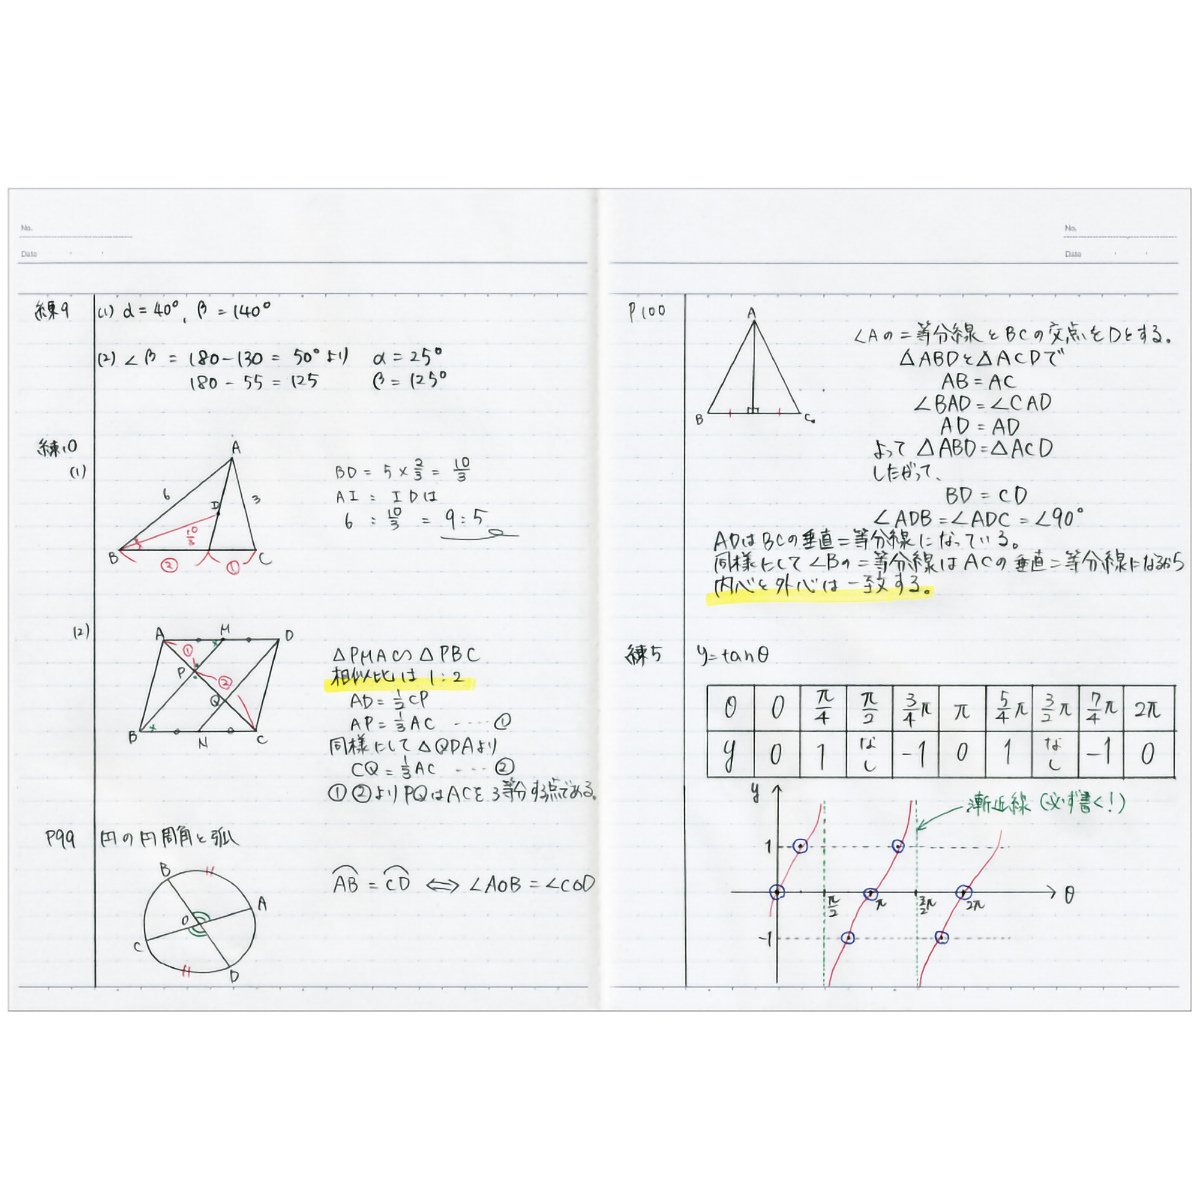 No.
Date
練9
(1) α=40°, β=140°
(2) ∠β = 180-130 = 50°より α=25°
180-55=125 β=125°
練10
(1)
A
6
3
D
10/3
B
C
②
①
BD = 5×2/3 = 10/3
AI : IDは
6 : 10/3 = 9:5
(2)
A
M
D
①
P
②
Q
B
N
C
△PMA∽△PBC
相似比は1:2
AD=1/2CP
AP=1/3AC ----①
同様にして△QDAより
CQ=1/3AC ---②
①②よりPQはACを3等分する点である。
P99 円の円周角と弧
B
A
O
C
D
AB=CD ⇔ ∠AOB=∠COD
No.
Date
P100
A
B
C
∠Aの二等分線とBCの交点をDとする。
△ABDと△ACDで
AB=AC
∠BAD=∠CAD
AD=AD
よって△ABD=△ACD
したがって、
BD=CD
∠ADB=∠ADC=∠90°
ADはBCの垂直二等分線になっている。
同様にして∠Bの二等分線はACの垂直二等分線になるから
内心と外心は一致する。
練5 y=tanθ
θ 0 π/4 π/2 3/4π π 5/4π 3/2π 7/4π 2π
y 0 1 なし -1 0 1 なし -1 0
y
漸近線(必ず書く!)
1
0 π/2 π 3/2π 2π θ
-1